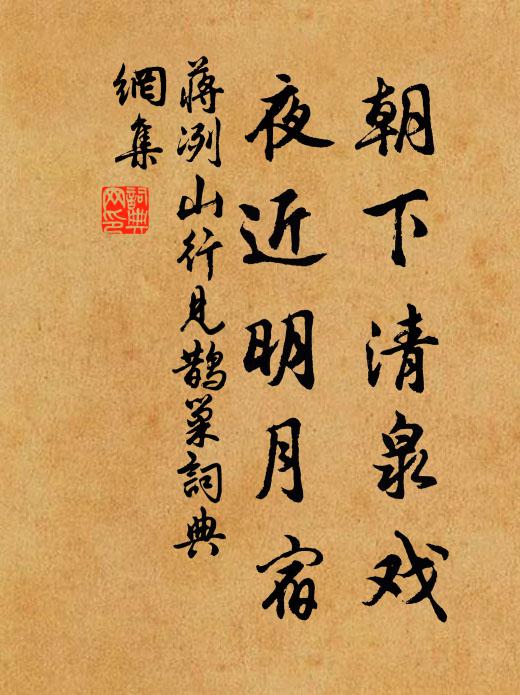 朝下清泉戏
夜近明月宿
蒋洌山行见鹊巢词典
網集
詞典網印